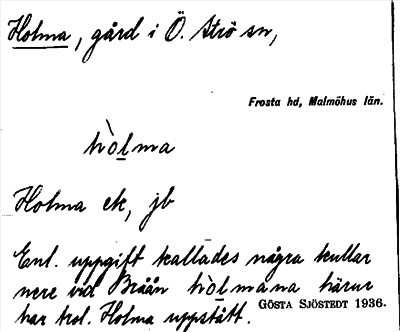 Holma, gård i Ö. Strö sn,
Frosta hd, Malmöhus län.
hòlma
Holma ek, jb
Enl. uppgift kallades några kullar
nere vid Bråån hòlmana härur
har trol. Holma uppstått.
GÖSTA SJÖSTEDT 1936.